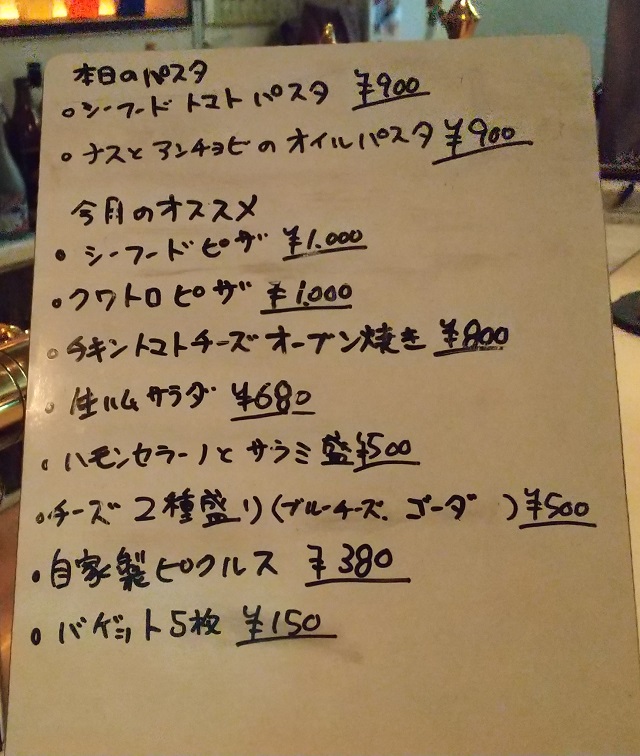 本日のパスタ
・シーフードトマトパスタ ¥900
・ナスとアンチョビのオイルパスタ ¥900
今月のオススメ
・シーフードピザ ¥1.000
・クワトロピザ ¥1.000
・チキントマトチーズオーブン焼き ¥800
・生ハムサラダ ¥680
・ハモンセラーノとサラミ盛 ¥500
・チーズ2種盛り(ブルーチーズ、ゴーダ ) ¥500
・自家製ピクルス ¥380
・バゲット5枚 ¥150